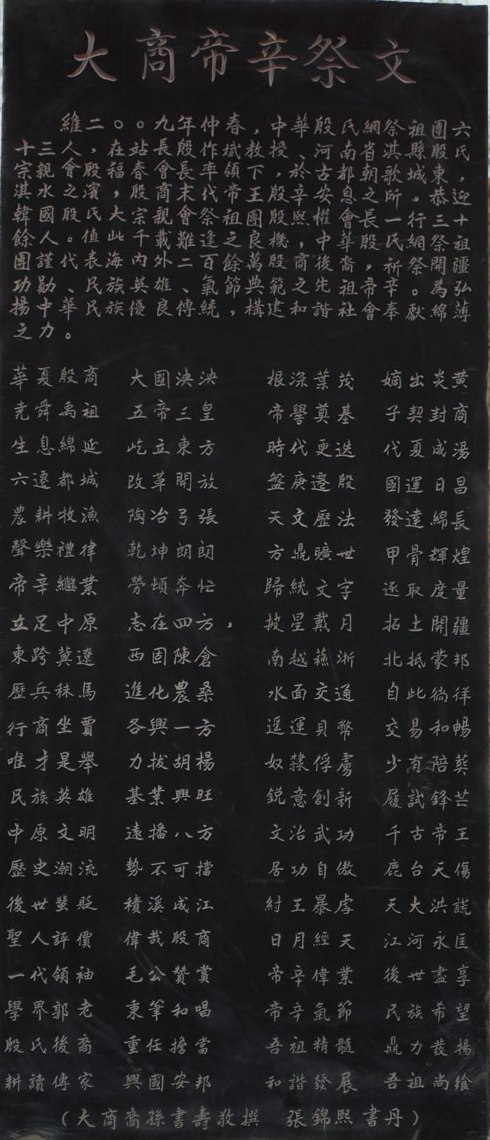 大商帝辛祭文
維二。。九年仲春，中華殷氏網祭祖團六
十三人，在站長殷作斌教授、河南省淇縣殷氏
宗親會殷福春會長率領下，於古都朝歌城東、
淇水之濱，殷商末代帝王殷辛安息之所。恭迎
韓國殷氏大宗親會祭祖團殷熙權會長一行三十
餘人。值此千載難逢之良機，中華殷氏網祭祖
團謹代表海內外二百餘萬殷商後裔，祈祭開疆
功勤、民族英雄、氣節典範之先祖帝辛。為弘
揚中華民族優良傳統，構建和諧社會奉獻綿薄
之力。
華夏殷商 大國泱泱 根深葉茂 嫡出炎黃
堯舜禹祖 五帝三皇 帝嚳奠基 子契封商
生息綿延 屹立東方 時代更迭 代夏成湯
六遷都城 改革開放 盤庚遷殷 國運日昌
農耕牧漁 陶冶弓張 天文歷法 發達綿長
聲樂禮律 乾坤朗朗 方鼎曠世 甲骨輝煌
帝辛繼業 勞頓奔忙 歸統文字 逐取度量
立足中原 志在四方， 披星戴月 拓土開疆
東跨冀遼 西固陳倉 南越蘇浙 北抵蒙邦
歷兵秣馬 進化農桑 水面交通 自此徜徉
行商坐賈 各興一方 遥運貝幣 交易和暢
唯才是舉 力拔胡楊 奴隸俘虜 少有陪葬
民族英雄 基業興旺 銳意創新 履試鋒芒
中原文明 遠播八方 文治武功 千古帝王
歷史潮流 勢不可擋 居功自傲 鹿台天傷
後世蜚貶 積溪成江 紂王暴虐 天大洪謊
聖人評價 偉哉殷商 日月經天 江河永匡
一代領袖 毛公贊賞 帝辛偉業 後世盡享
學界郭老 秉筆和唱 帝辛氣節 民族希望
殷氏後裔 重任擔當 吾祖精髓 鼎力發揚
耕讀傳家 興國安邦 和諧發展 吾祖尚饗
（大商裔孫書壽敬撰 張錦熙書丹）